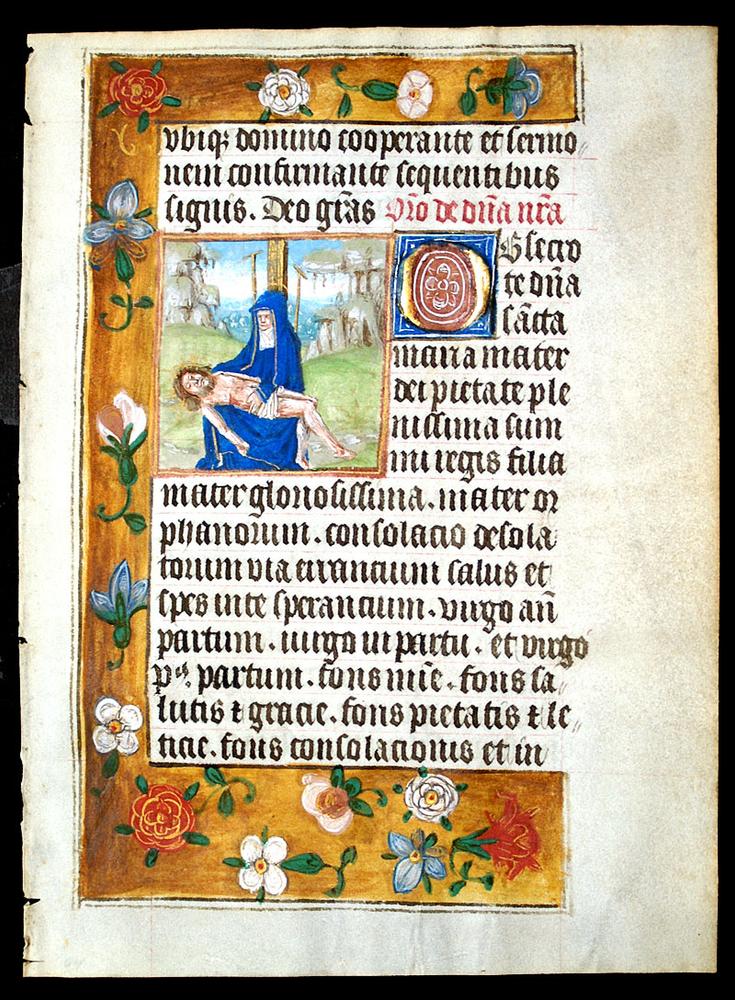 vbiq; domino cooperante et sermo
nem confirmante sequentibus
signis. Deo gr̃as Or̃o de dn̄a nr̄a
Obsecro
te dn̄a
sc̄āta
maria mater
dei pietate ple
nissima sum
mi regis filia
mater gloriosissima. mater or
phanorum. consolacio desola
torum via errancium salus et
spes in te sperancium. virgo an̄
partum. uirgo in partu. et virgo
p⁹ partum. fons mīe. fons sa
lutis ⁊ gracie. fons pietatis ⁊ le
ticie. fons consolacionis et in